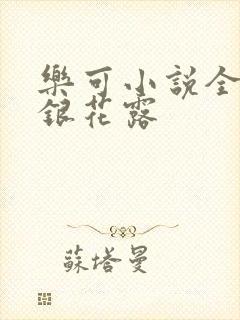 樂可小説全
銀花露
蘇塔曼